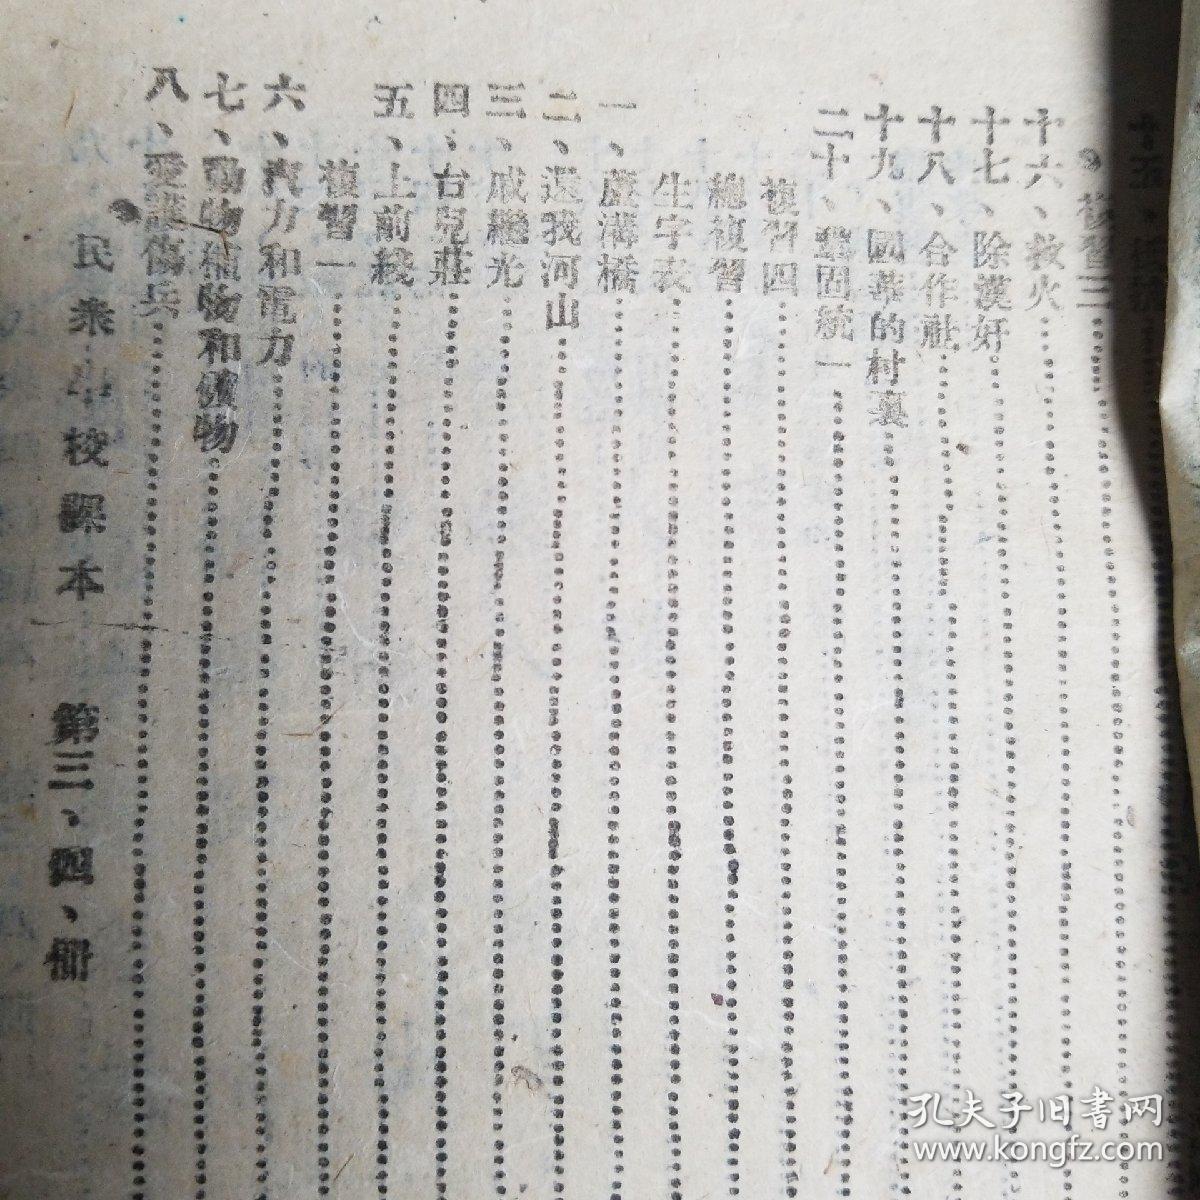 十五、
複習三
十六、救火
十七、除漢奸
十八、合作社
十九、國華的村裏
二十、鞏固統一
複習四
總複習
生字表
一、蘆溝橋
二、還我河山
三、戚繼光
四、台兒莊
五、上前綫
複習一
六、汽力和電力
七、動物植物和礦物
八、愛護傷兵
民眾小校課本 第三、四、冊
孔夫子旧书网
www.kongfz.com